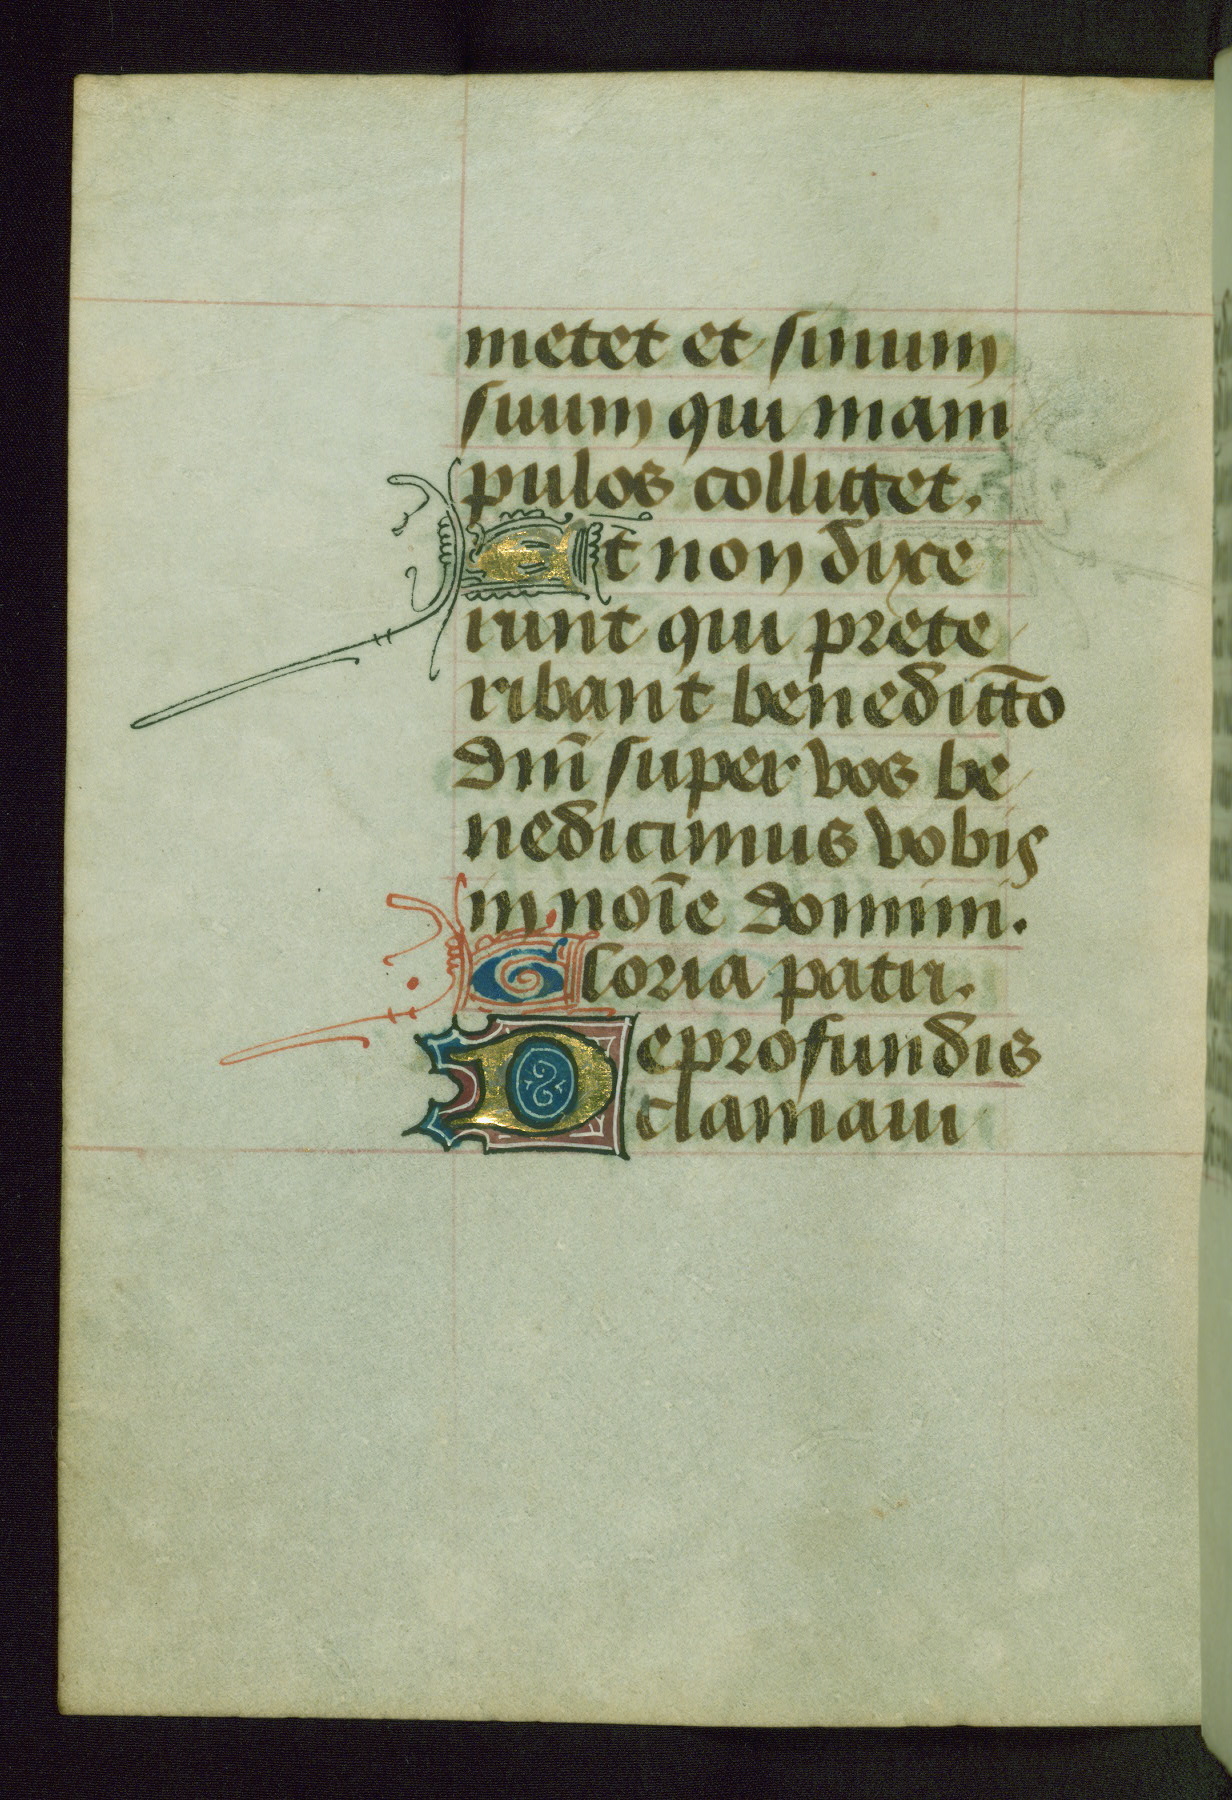 metet et sinum
suum qui mani
pulos collittet.
Et non dixe
runt qui prete
ribant benedictõ
dnĩ super vos be
nedicimus vobis
in noĩe domini.
Gloria patri.
De profundis
clamaui